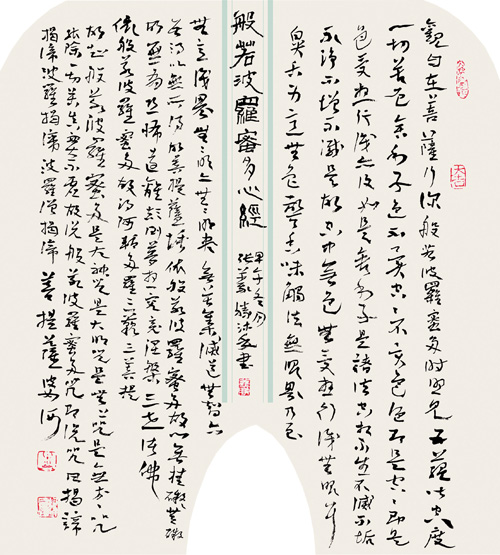 觀自在菩薩行深般若波羅蜜多時照見五蘊皆空度
一切苦厄舍利子色不異空空不異色色即是空空即是
色受想行識亦復如是舍利子是諸法空相不生不滅不垢
不淨不增不減是故空中無色無受想行識無眼耳
鼻舌身意無色聲香味觸法無眼界乃至
般若波羅蜜多心經
甲午冬月
張義勝沐手書
無意識界無無明亦無無明盡無苦集滅道無智亦
無得以無所得故菩提薩埵依般若波羅蜜多故心無掛礙無掛礙
故無有恐怖遠離顛倒夢想究竟涅槃三世諸佛
依般若波羅蜜多故得阿耨多羅三藐三菩提
故知般若波羅蜜多是大神咒是大明咒是無上咒是無等等咒
能除一切苦真實不虛故說般若波羅蜜多咒即說咒曰揭諦
揭諦波羅揭諦波羅僧揭諦菩提薩婆訶
大吉